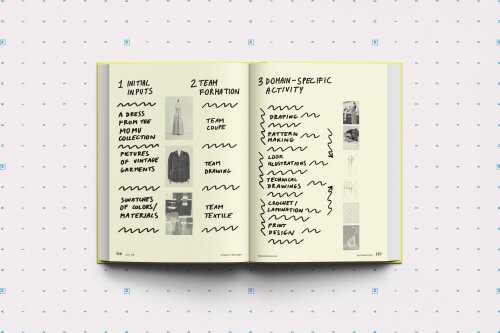 1 INITIAL
INPUTS
A DRESS
FROM THE
MOMU
COLLECTION
PICTURES
OF VINTAGE
GARMENTS
SWATCHES
OF COLORS/
MATERIALS
2 TEAM
FORMATION
TEAM
COUPE
TEAM
DRAWING
TEAM
TEXTILE
3 DOMAIN-SPECIFIC
ACTIVITY
DRAPING
PATTERN
MAKING
LOOK
ILLUSTRATIONS
TECHNICAL
DRAWINGS
CROCHET/
LAMINATION
PRINT
DESIGN